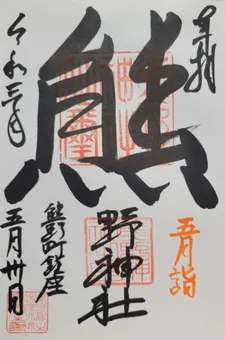 奉拝
五月詣
熊野神社
熊野町鎮座
令和三年
五月卅日